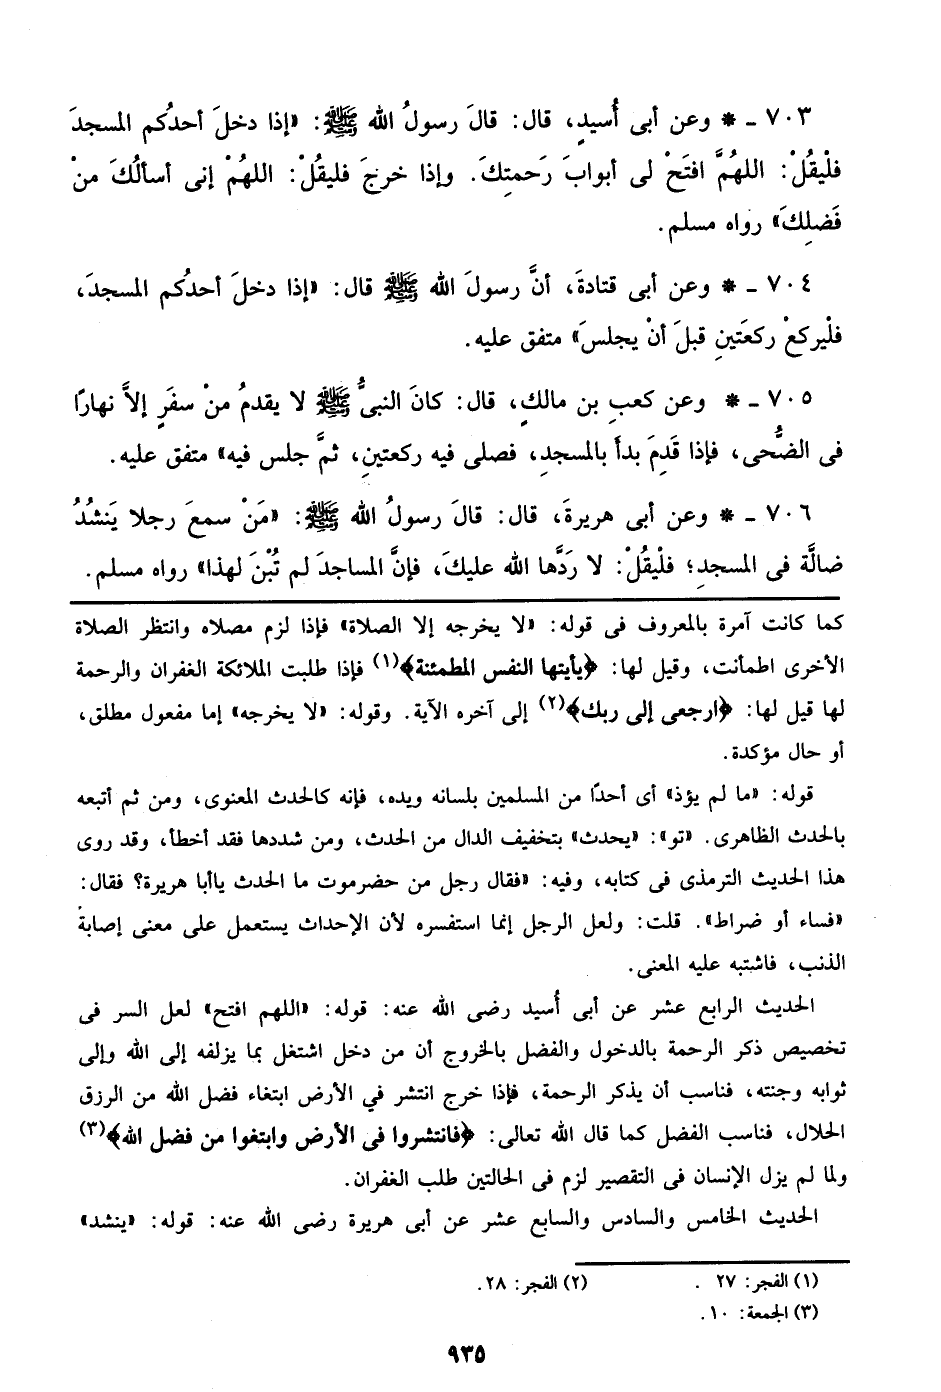 ٧٠٣ ـ * وعن أبى أُسيدٍ، قال: قالَ رسولُ الله ﷺ: «إذا دخلَ أحدُكم المسجدَ
فلْيقُلْ: اللهُمَّ افتَحْ لى أبوابَ رَحمتِكَ. وإذا خرجَ فليقُلْ: اللهُمْ إنى أسألُكَ منْ
فَضلِكَ» رواه مسلم.
٧٠٤ ـ * وعن أبى قتادةَ، أنَّ رسولَ الله ﷺ قال: «إذا دخلَ أحدُكم المسجدَ،
فلْيركعْ ركعَتينِ قبلَ أنْ يجلسَ» متفق عليه.
٧٠٥ ـ * وعن كعبِ بن مالكٍ، قال: كانَ النبىُّ ﷺ لا يقدمُ منْ سفَرٍ إلاَّ نهارًا
فى الضُّحى، فإذا قَدِمَ بدأَ بالمسجدِ، فصلى فيه ركعتينِ، ثمَّ جلس فيه» متفق عليه.
٧٠٦ ـ * وعن أبى هريرةَ، قال: قالَ رسولُ الله ﷺ: «مَنْ سمعَ رجلا يَنشُدُ
ضالَّة فى المسجدِ؛ فلْيقُلْ: لا رَدَّها الله عليكَ، فإنَّ المساجدَ لم تُبْنَ لهذا» رواه مسلم.
كما كانت آمرة بالمعروف فى قوله: «لا يخرجه إلا الصلاة» فإذا لزم مصلاه وانتظر الصلاة
الأخرى اطمأنت، وقيل لها: ﴿يأيتها النفس المطمئنة﴾(١) فإذا طلبت الملائكة الغفران والرحمة
لها قيل لها: ﴿ارجعى إلى ربك﴾(٢) إلى آخره الآية. وقوله: «لا يخرجه» إما مفعول مطلق،
أو حال مؤكدة.
قوله: «ما لم يؤذ» أى أحدًا من المسلمين بلسانه ويده، فإنه كالحدث المعنوى، ومن ثم أتبعه
بالحدث الظاهرى. «تو»: «يحدث» بتخفيف الدال من الحدث، ومن شددها فقد أخطأ، وقد روى
هذا الحديث الترمذى فى كتابه، وفيه: «فقال رجل من حضرموت ما الحدث ياأبا هريرة؟ فقال:
«فساء أو ضراط». قلت: ولعل الرجل إنما استفسره لأن الإحداث يستعمل على معنى إصابةُ
الذنب، فاشتبه عليه المعنى.
الحديث الرابع عشر عن أبى أُسيد رضى الله عنه: قوله: «اللهم افتح» لعل السر فى
تخصيص ذكر الرحمة بالدخول والفضل بالخروج أن من دخل اشتغل بما يزلفه إلى الله وإلى
ثوابه وجنته، فناسب أن يذكر الرحمة، فإذا خرج انتشر في الأرض ابتغاء فضل الله من الرزق
الحلال، فناسب الفضل كما قال الله تعالى: ﴿فانتشروا فى الأرض وابتغوا من فضل الله﴾(٣)
ولما لم يزل الإنسان فى التقصير لزم فى الحالتين طلب الغفران.
الحديث الخامس والسادس والسابع عشر عن أبى هريرة رضى الله عنه: قوله: «ينشد»
(١) الفجر: ٢٧ . (٢) الفجر: ٢٨.
(٣) الجمعة: ١٠.
٩٣٥